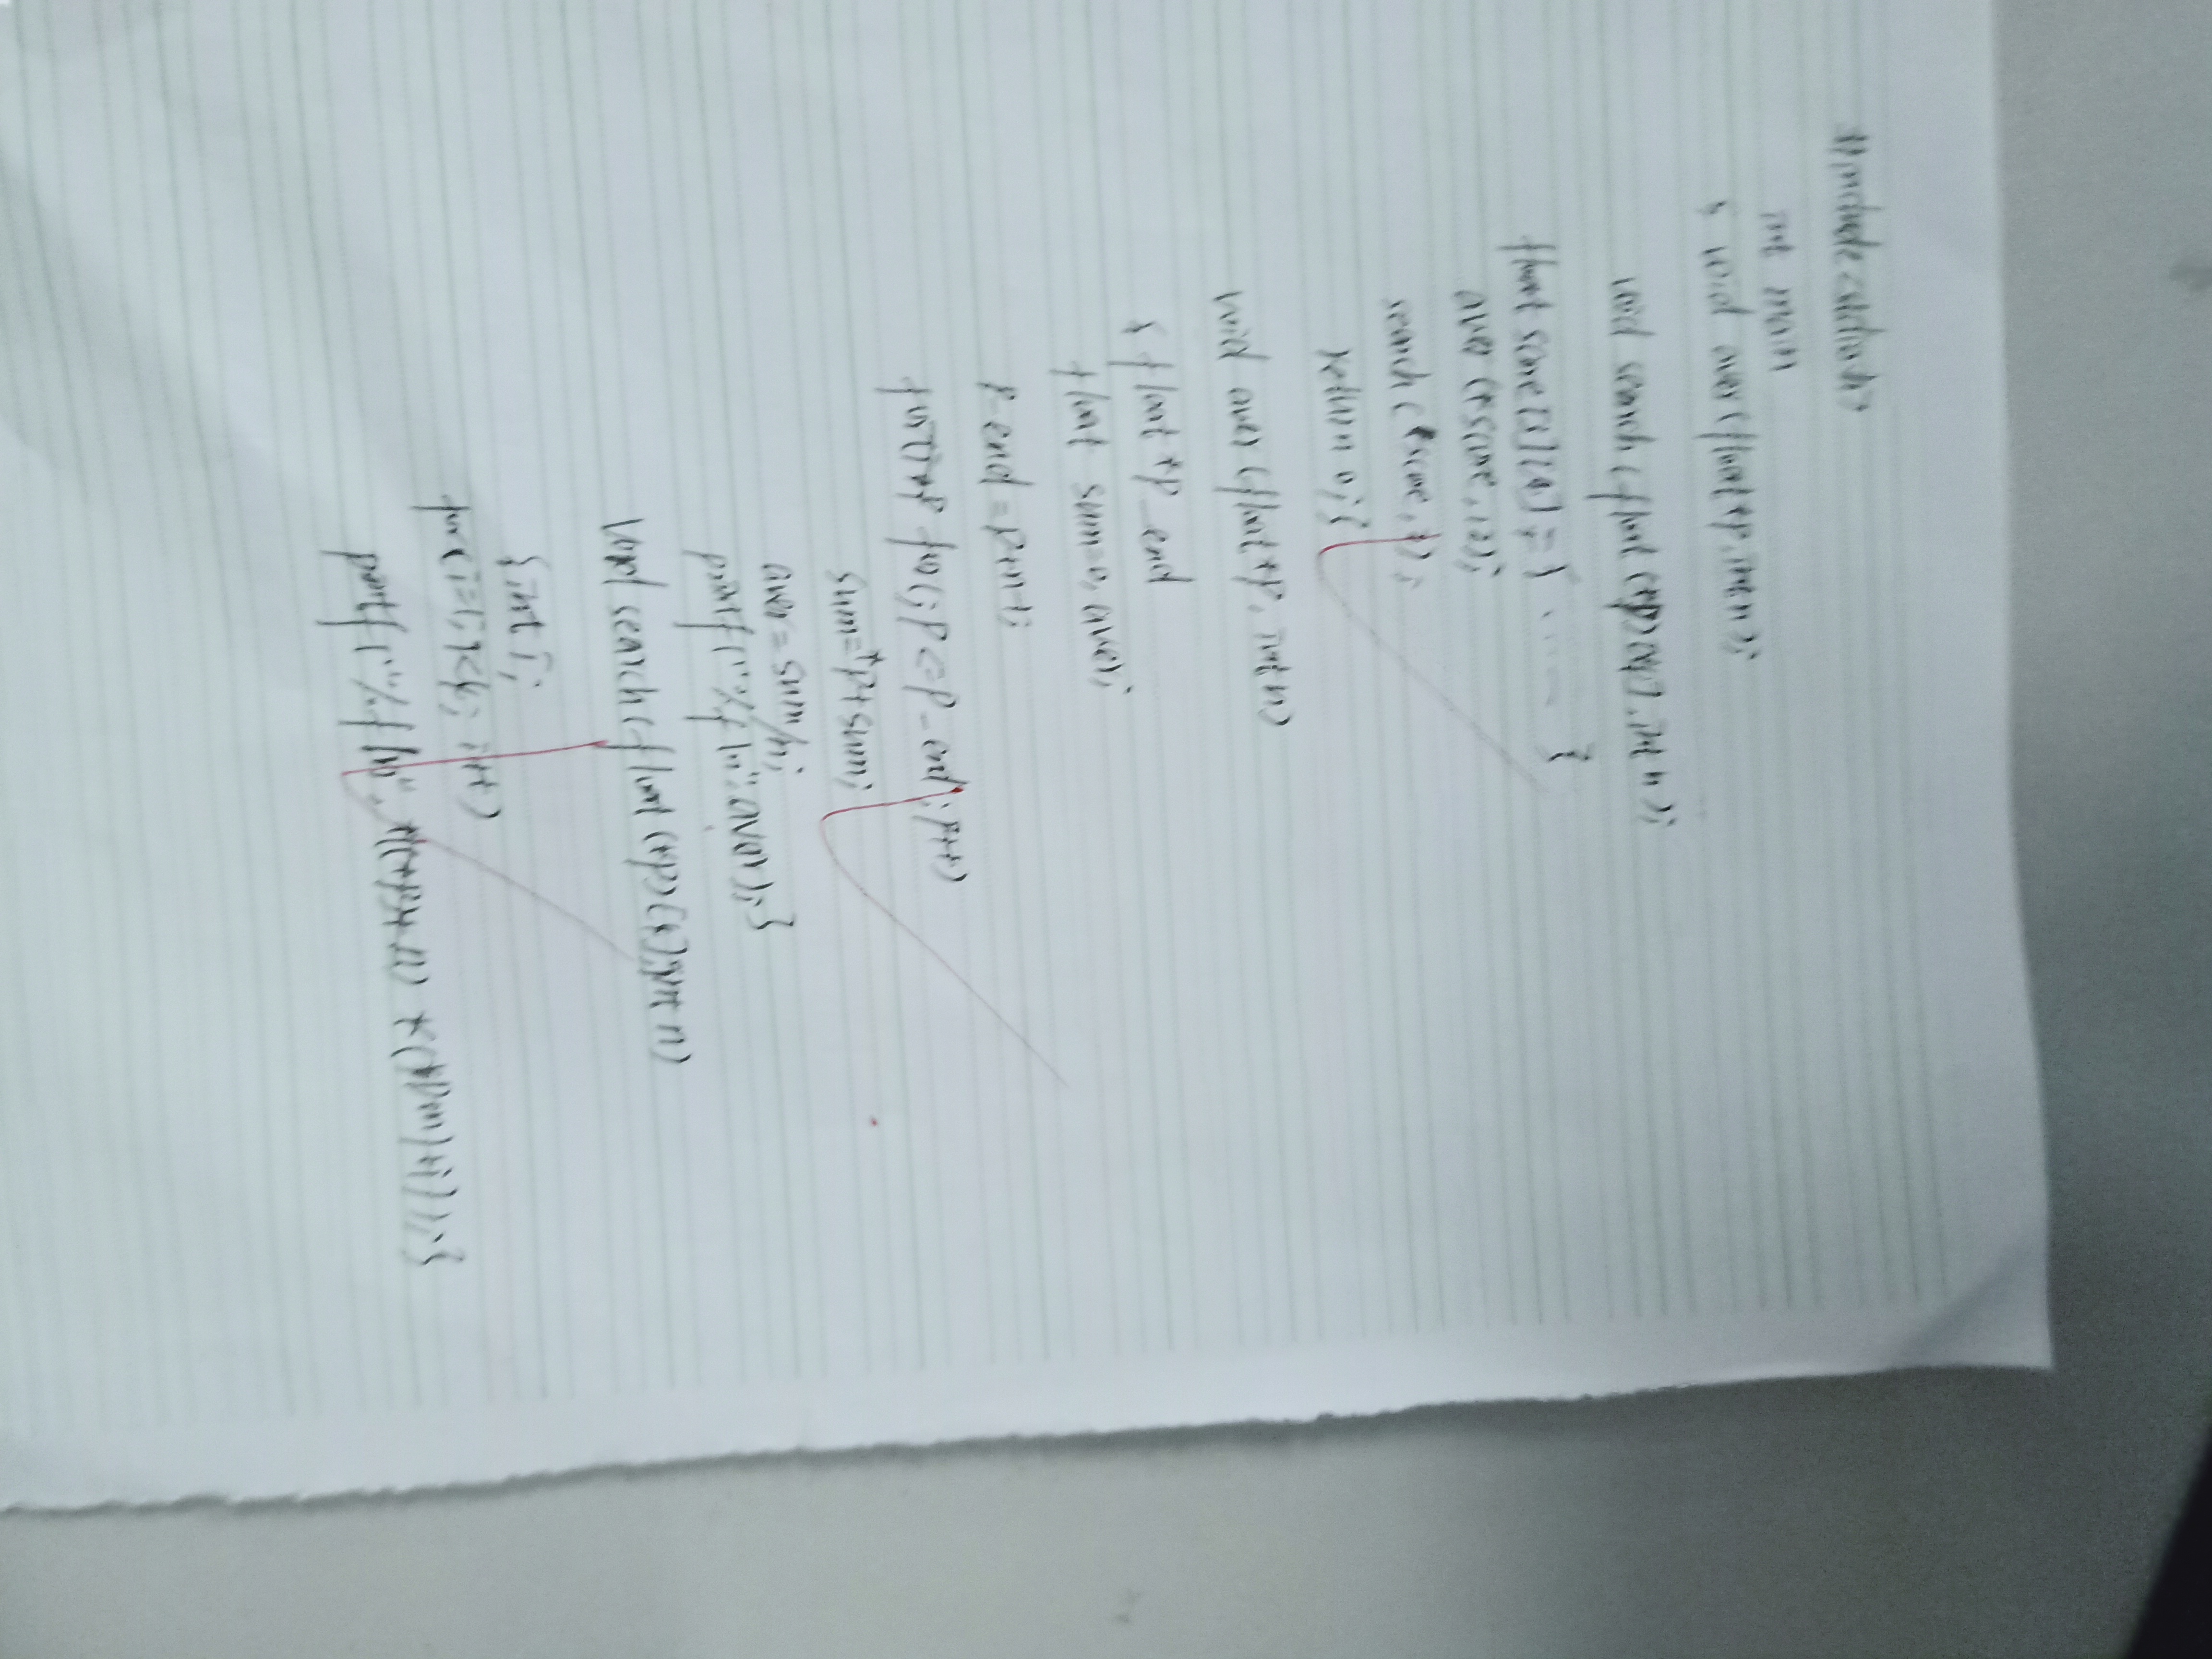 #include<stdio.h>
int main
{ void aver(float *p, int n);
void search(float (*p)[4], int n);
float score[3][4] = { ..... }
aver(*score, 12);
search(*score, 2);
return 0; }
void aver(float *p, int n)
{ float *p_end
float sum=0, aver;
p-end = p+n-1;
for(; p<=p-end; p++)
sum=*p+sum;
aver = sum/n;
printf("%f\n", aver); }
void search(float (*p)[4], int n)
{ int i;
for(i=0; i<4; i++)
printf("%f\n", *(*(p+n)+i)); }